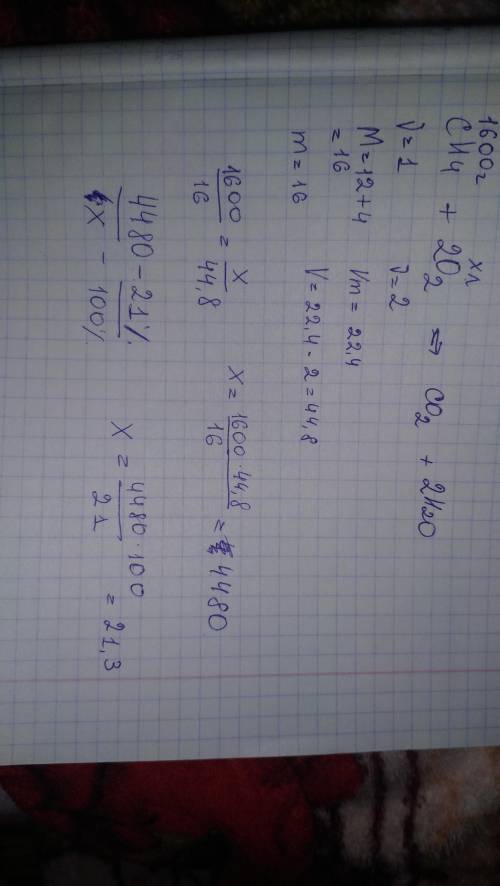 1600г хл
CH4 + 2O2 ⇒ CO2 + 2H2O
ν=1 ν=2
M=12+4 Vm = 22,4
=16
m=16 V=22,4·2=44,8
1600/16 = x/44,8 x = 1600·44,8/16 = 4480
4480 – 21%
x – 100%
x = 4480·100/21 = 21,3